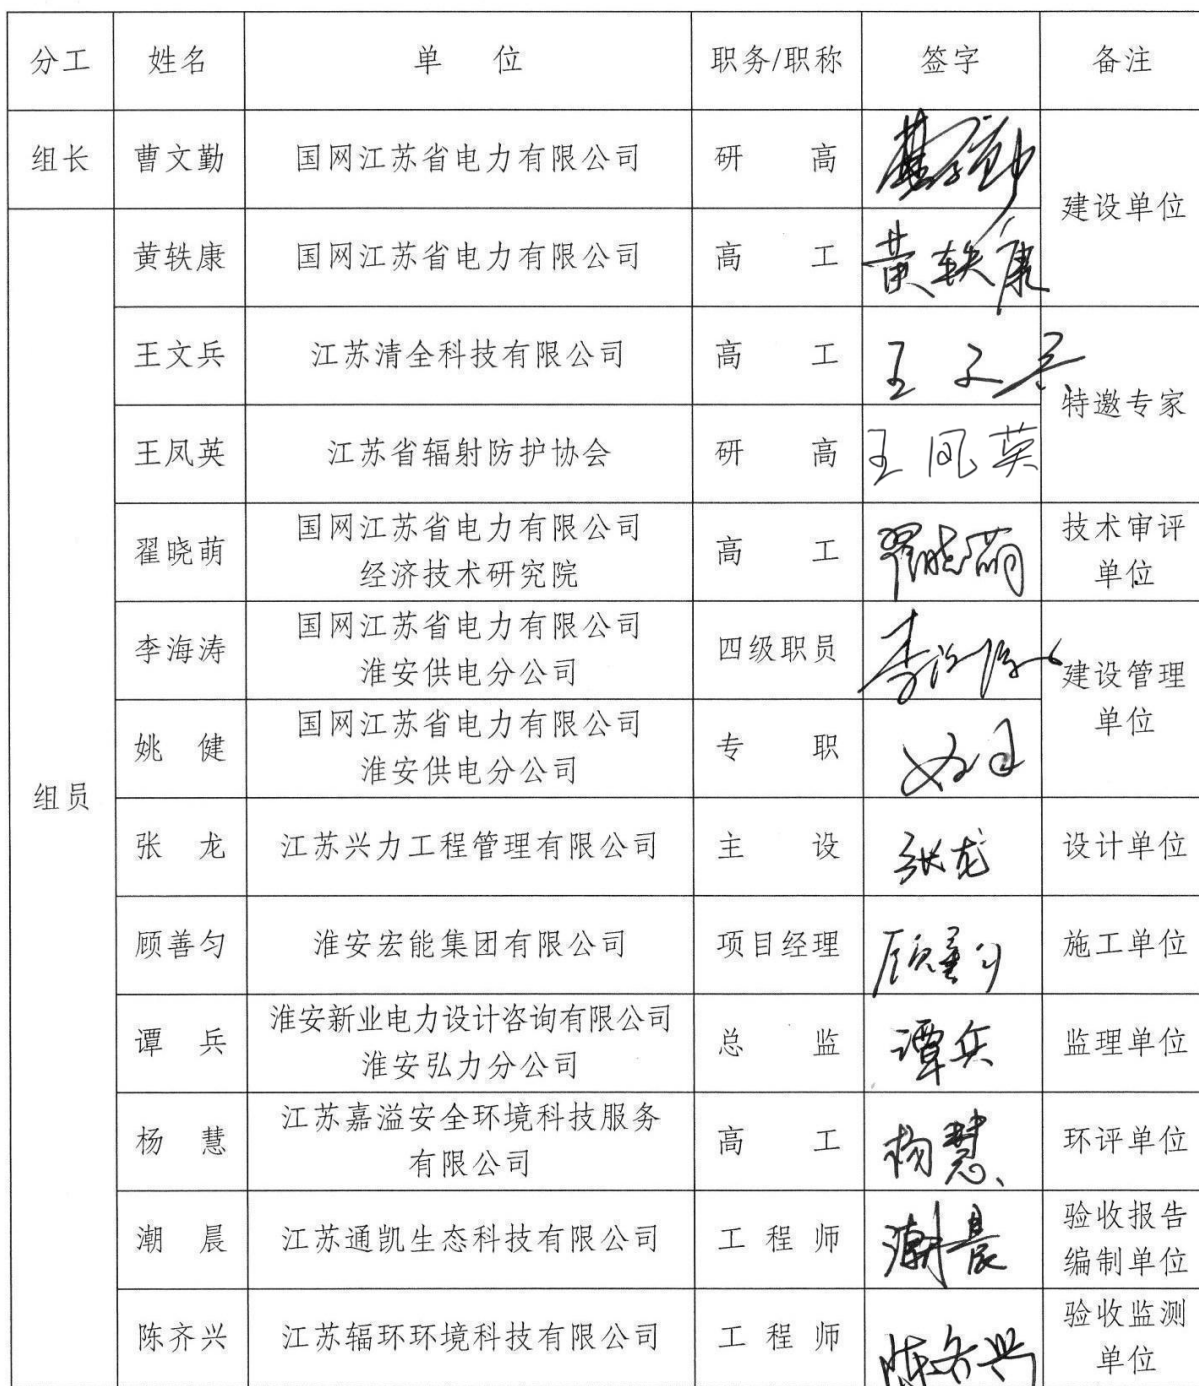 分工 姓名 单 位 职务/职称 签字 备注
组长 曹文勤 国网江苏省电力有限公司 研 高 曹文勤 建设单位
组员 黄轶康 国网江苏省电力有限公司 高 工 黄轶康
王文兵 江苏清全科技有限公司 高 工 王文兵 特邀专家
王凤英 江苏省辐射防护协会 研 高 王凤英
翟晓萌 国网江苏省电力有限公司 高 工 翟晓萌 技术审评
经济技术研究院 单位
李海涛 国网江苏省电力有限公司 四级职员 李海涛 建设管理
淮安供电分公司 单位
姚 健 国网江苏省电力有限公司 专 职
淮安供电分公司
张 龙 江苏兴力工程管理有限公司 主 设 张龙 设计单位
顾善匀 淮安宏能集团有限公司 项目经理 顾善匀 施工单位
谭 兵 淮安新业电力设计咨询有限公司 总 监 谭兵 监理单位
淮安弘力分公司
杨 慧 江苏嘉溢安全环境科技服务 高 工 杨慧 环评单位
有限公司
潮 晨 江苏通凯生态科技有限公司 工 程 师 潮晨 验收报告
编制单位
陈齐兴 江苏辐环环境科技有限公司 工 程 师 陈齐兴 验收监测
单位